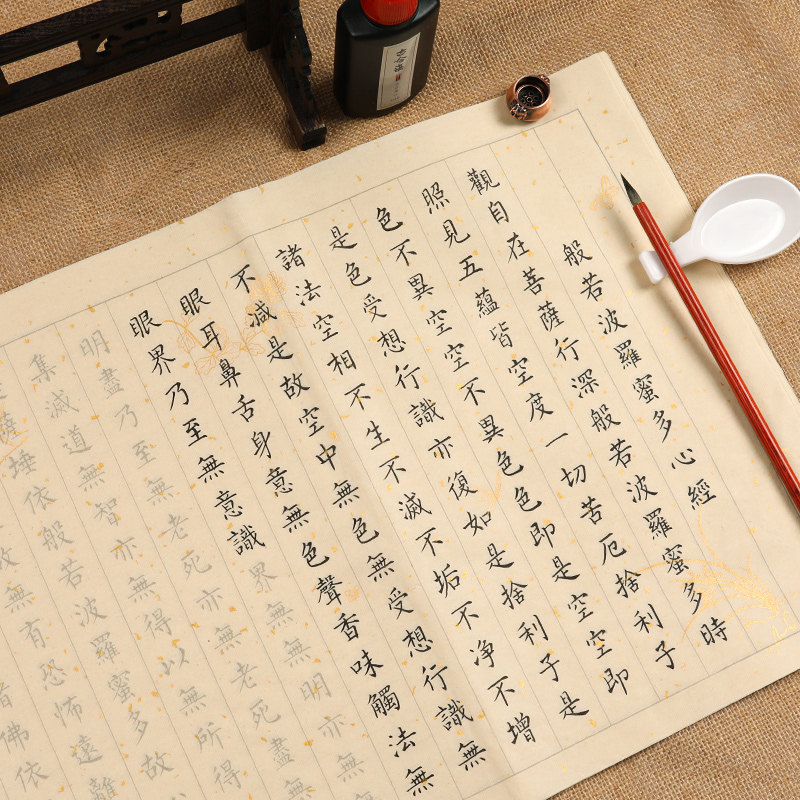 般若波羅蜜多心經
觀自在菩薩行深般若波羅蜜多時
照見五蘊皆空度一切苦厄捨利子
色不異空空不異色色即是空空即
是色受想行識亦復如是捨利子是
諸法空相不生不滅不垢不净不增
不減是故空中無色無受想行識無
眼耳鼻舌身意無色聲香味觸法無
眼界乃至無意識界無無明亦無
明盡乃至無老死亦無老死盡無
集滅道無智亦無得以無所得
薩埵依般若波羅蜜多故
故無有恐怖遠離
佛依